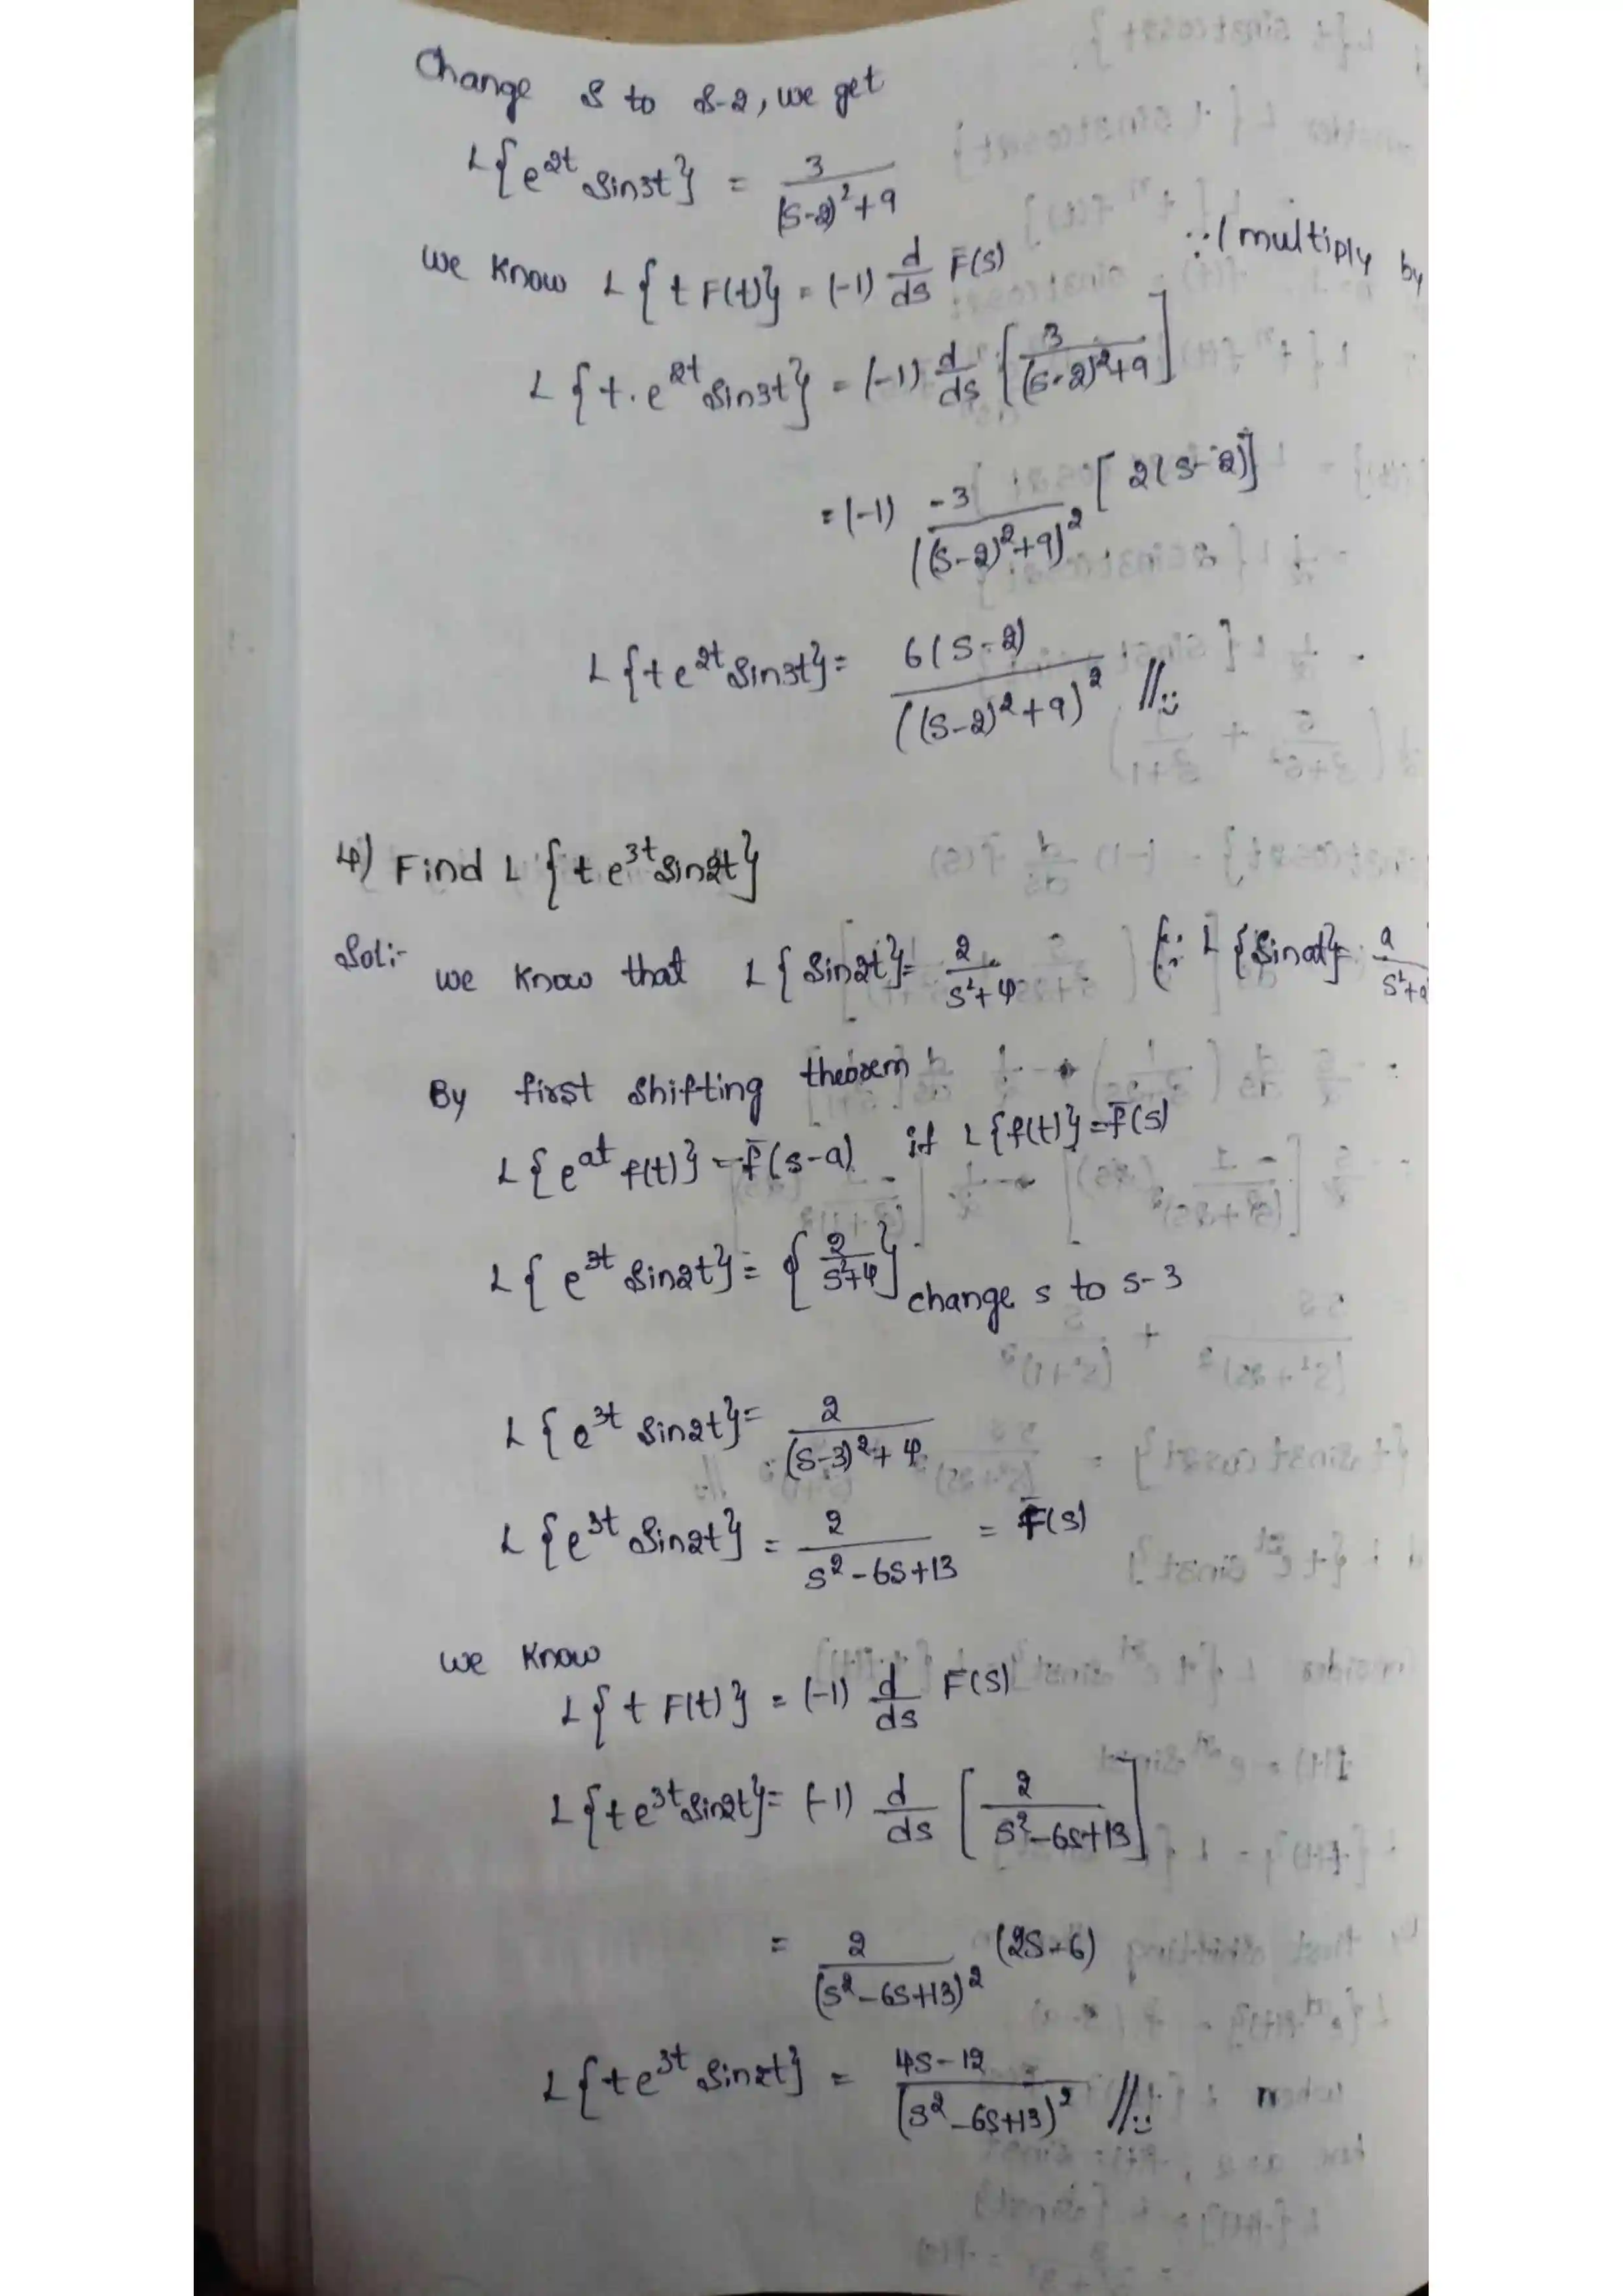 Change s to s-2, we get
L{e^{2t} sin3t} = 3/((s-2)^2+9)
we know L{t F(t)} = (-1) d/ds F̄(s) ∵ (multiply by
L{t. e^{2t} sin3t} = (-1) d/ds [3/((s-2)^2+9)]
= (-1) -3/((s-2)^2+9)^2 [2(s-2)]
L{t e^{2t} sin3t} = 6(s-2)/((s-2)^2+9)^2 //
4) Find L{t e^{3t} sin2t}
Sol:- we know that L{sin2t} = 2/(s^2+4) (∵ L{sinat} = a/(s^2+a
By first shifting theorem
L{e^{at} f(t)} = f̄(s-a) if L{f(t)} = f̄(s)
L{e^{3t} sin2t} = {2/(s^2+4)} change s to s-3
L{e^{3t} sin2t} = 2/((s-3)^2+4)
L{e^{3t} sin2t} = 2/(s^2-6s+13) = F̄(s)
we know
L{t F(t)} = (-1) d/ds F(s)
L{t e^{3t} sin2t} = (-1) d/ds [2/(s^2-6s+13)]
= 2/(s^2-6s+13)^2 (2s-6)
L{t e^{3t} sin2t} = (4s-12)/(s^2-6s+13)^2 //